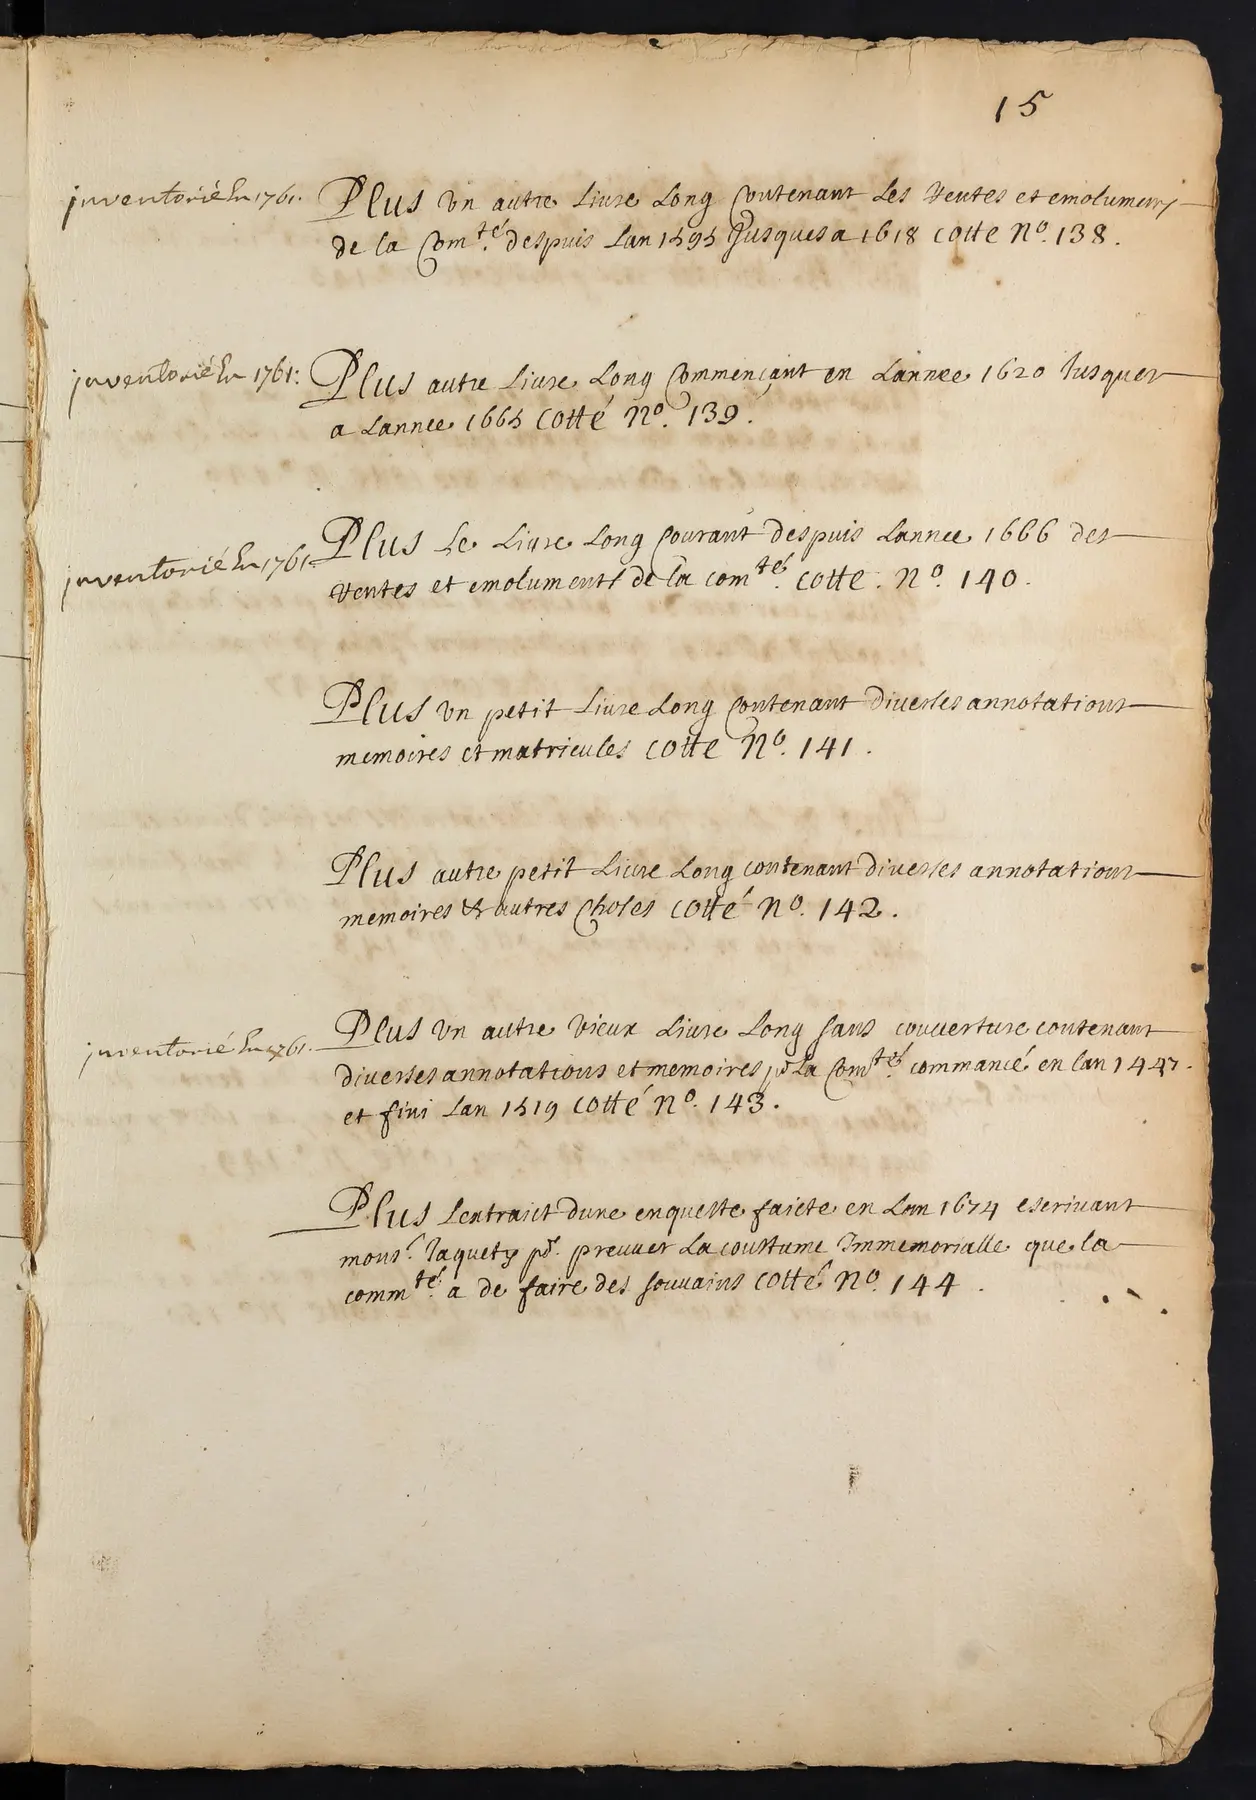 15
inventorié En 1761. Plus Vn autre Liure Long Contenant Les Ventes et emolumens
de la Com.té despuis Lan 1595 Jusques a 1618 cotte No. 138.
inventorié En 1761: Plus autre Liure Long Commençant en Lannee 1620 Jusques
a Lannee 1665 Cotté No. 139.
Plus Le Liure Long Courant despuis Lannee 1666 des
inventorié En 1761. Ventes et emoluments de la com.té cotte. No. 140.
Plus Vn petit Liure Long Contenant diuerses annotations
memoires et matricules cotte No. 141.
Plus autre petit Liure Long contenant diuerses annotations
memoires & autres Choses Cotté No. 142.
Plus Vn autre Vieux Liure Long sans couuerture contenant
inventorié En 1761. diuerses annotations et memoires pr La Com.té commancé en lan 1447.
et fini Lan 1519 Cotté No. 143.
Plus Lextraict dune enqueste faicte en Lan 1674 escriuant
mons.r pr. preuuer La coustume Immemorialle que la
comm.té a de faire des souuains Cotté No. 144.